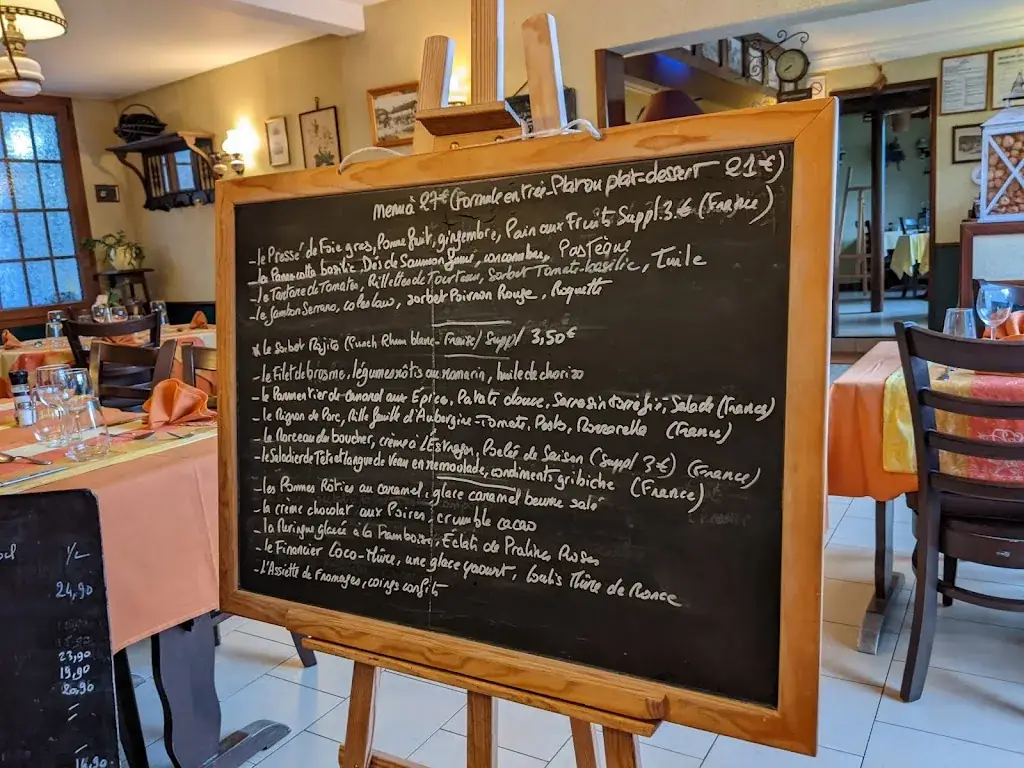 Menu à 27€ (Formule entrée-Plat ou plat-dessert 21€)
-le Pressé de Foie gras, Pomme fruit, gingembre, Pain aux Fruits Suppl.3€ (France)
-la Panna cotta basilic, Dés de Saumon fumé, concombre, Pastèque
-le Tartare de Tomates, Rillettes de Tourteau, sorbet Tomate-basilic, Tuile
-le Jambon Serrano, coleslaw, sorbet Poivron Rouge, Roquette
* le Sorbet Mojito (Punch Rhum blanc-Fraise) Suppl 3,50€
-le Filet de brosme, légumes rôtis au romarin, huile de chorizo
-le Parmentier de canard aux Epices, Patate douce, Sarrasin torréfié, Salade (France)
-le Mignon de Porc, Mille feuille d'Aubergine-Tomate, Pesto, Mozzarella (France)
-le Morceau du boucher, crème à l'Estragon, Poêlée de Saison (Suppl 3€) (France)
-le Saladier de Tête et langue de Veau en remoulade, condiments gribiche (France)
-les Pommes Rôties au caramel, glace caramel beurre salé
-la crème chocolat aux Poires, crumble cacao
-la Meringue glacée à la Framboise, Eclats de Pralines Roses
-le Financier Coco-Mûre, une glace yaourt, Coulis Mûre de Ronce
-l'Assiette de Fromages, coings confits
1/2
24,90
23,90
19,90
20,90
16,90